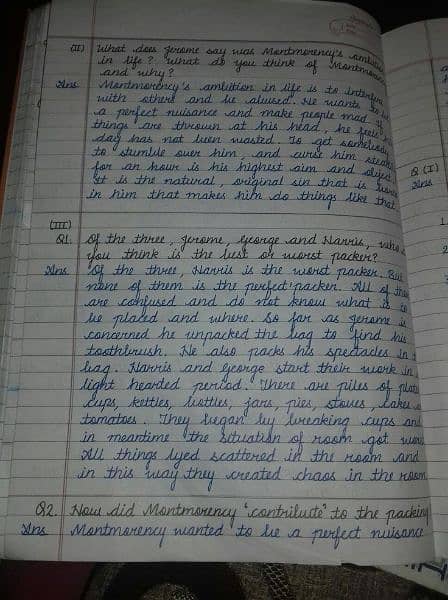 (II) What does Jerome say was Montmorency's
in life? What do you think of
and why?
Ans Montmorency's ambition in life is to
with others and be abused. He wants to
a perfect nuisance and make people mad
things are thrown at his head, he
day has not been wasted. To get
to stumble over him, and curse him
for an hour is his highest aim and
It is the natural, original sin that is
in him that makes him do things like that
Q (I)
(III)
Q1. Of the three, Jerome, George and Harris, who
you think is the best or worst packer?
Ans Of the three, Harris is the worst packer. But
none of them is the perfect packer. All of
are confused and do not know what is to
be placed and where. So far as Jerome is
concerned he unpacked the bag to find his
toothbrush. He also packs his spectacles in
bag. Harris and George start their work in
light hearted period. There are piles of
cups, kettles, bottles, jars, pies, stoves, cakes
tomatoes. They began by breaking cups and
in meantime the situation of room got
All things lyed scattered in the room and
in this way they created chaos in the room
Q2. How did Montmorency "contribute" to the packing
Ans Montmorency wanted to be a perfect nuisance